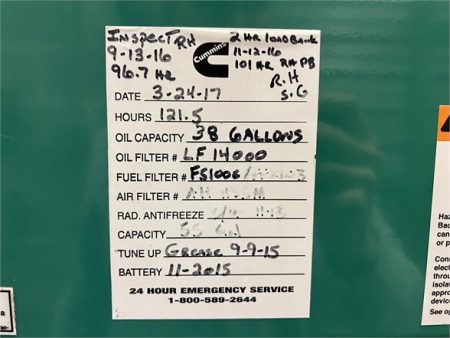 Inspect RH
9-13-16
96.7 HR
Cummins
2 HR LOAD Bank
11-12-16
101 HR RH PB
R.H
S.G
DATE 3-24-17
HOURS 121.5
OIL CAPACITY 38 GALLONS
OIL FILTER # LF 14000
FUEL FILTER # FS1006/
AIR FILTER #
RAD. ANTIFREEZE
CAPACITY 55 Gal
TUNE UP Grease 9-9-15
BATTERY 11-2015
24 HOUR EMERGENCY SERVICE
1-800-589-2644